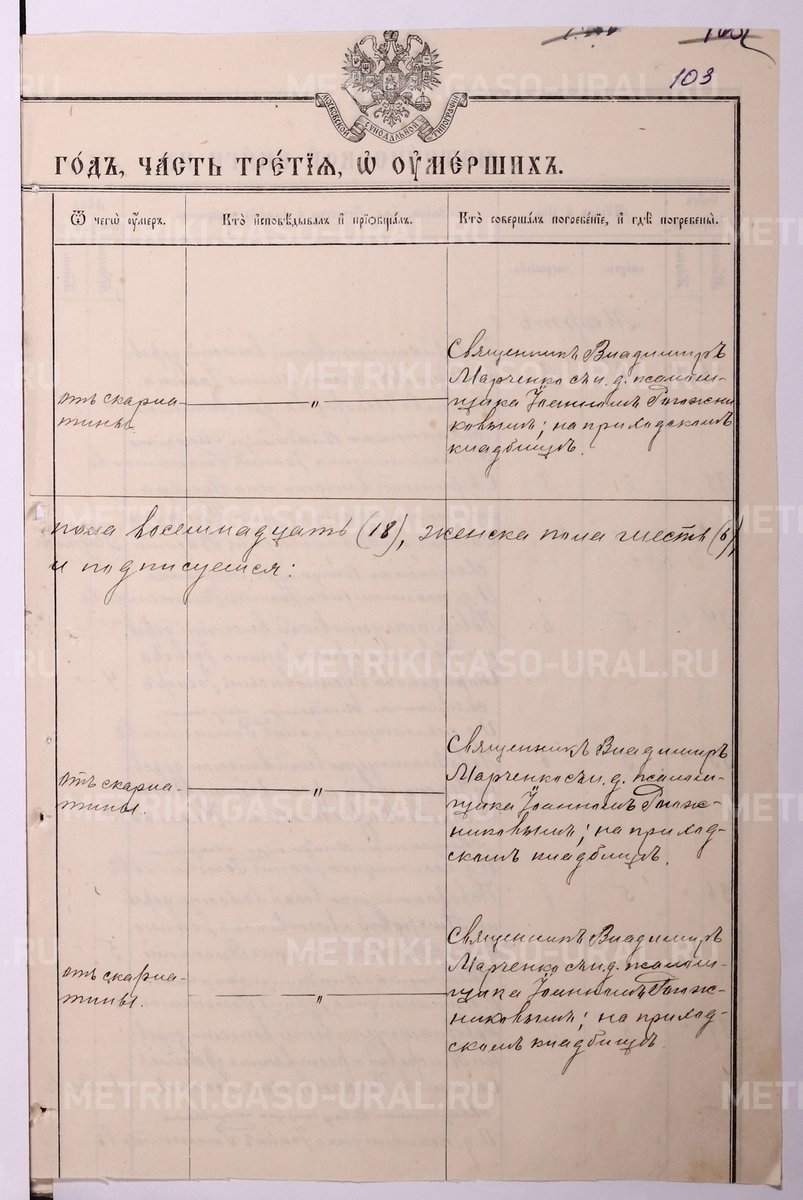 103
МОСКОВСКОЙ СѴНОДАЛЬНОЙ ТИПОГРАФІИ
ГО́ДЪ, ЧА́СТЬ ТРЕ́ТІѦ, Ѡ҆ ОУ҆МЕ́РШИХЪ.
Ѿ чегѡ̀ оу҆́меръ.
Кто̀ и҆сповѣ́дывалъ и҆ прїѡбща́лъ.
Кто̀ соверша́лъ погребе́нїе, и҆ гдѣ̀ погребены̀.
отъ скарла-
тины.
"
Священникъ Владимиръ
Марченко съ и. д. псалом-
щика Іоанномъ Рогожни
ковымъ; на приходскомъ
кладбищѣ.
пола восемнадцать (18), женска пола шесть (6),
и подписуемся:
отъ скарла-
тины.
"
Священникъ Владимиръ
Марченко съ и. д. псалом-
щика Іоанномъ Рогож-
никовымъ; на приход-
скомъ кладбищѣ.
отъ скарла-
тины.
"
Священникъ Владимиръ
Марченко съ и. д. псалом-
щика Іоанномъ Рогож-
никовымъ; на приход-
скомъ кладбищѣ.
METRIKI.GASO-URAL.RU